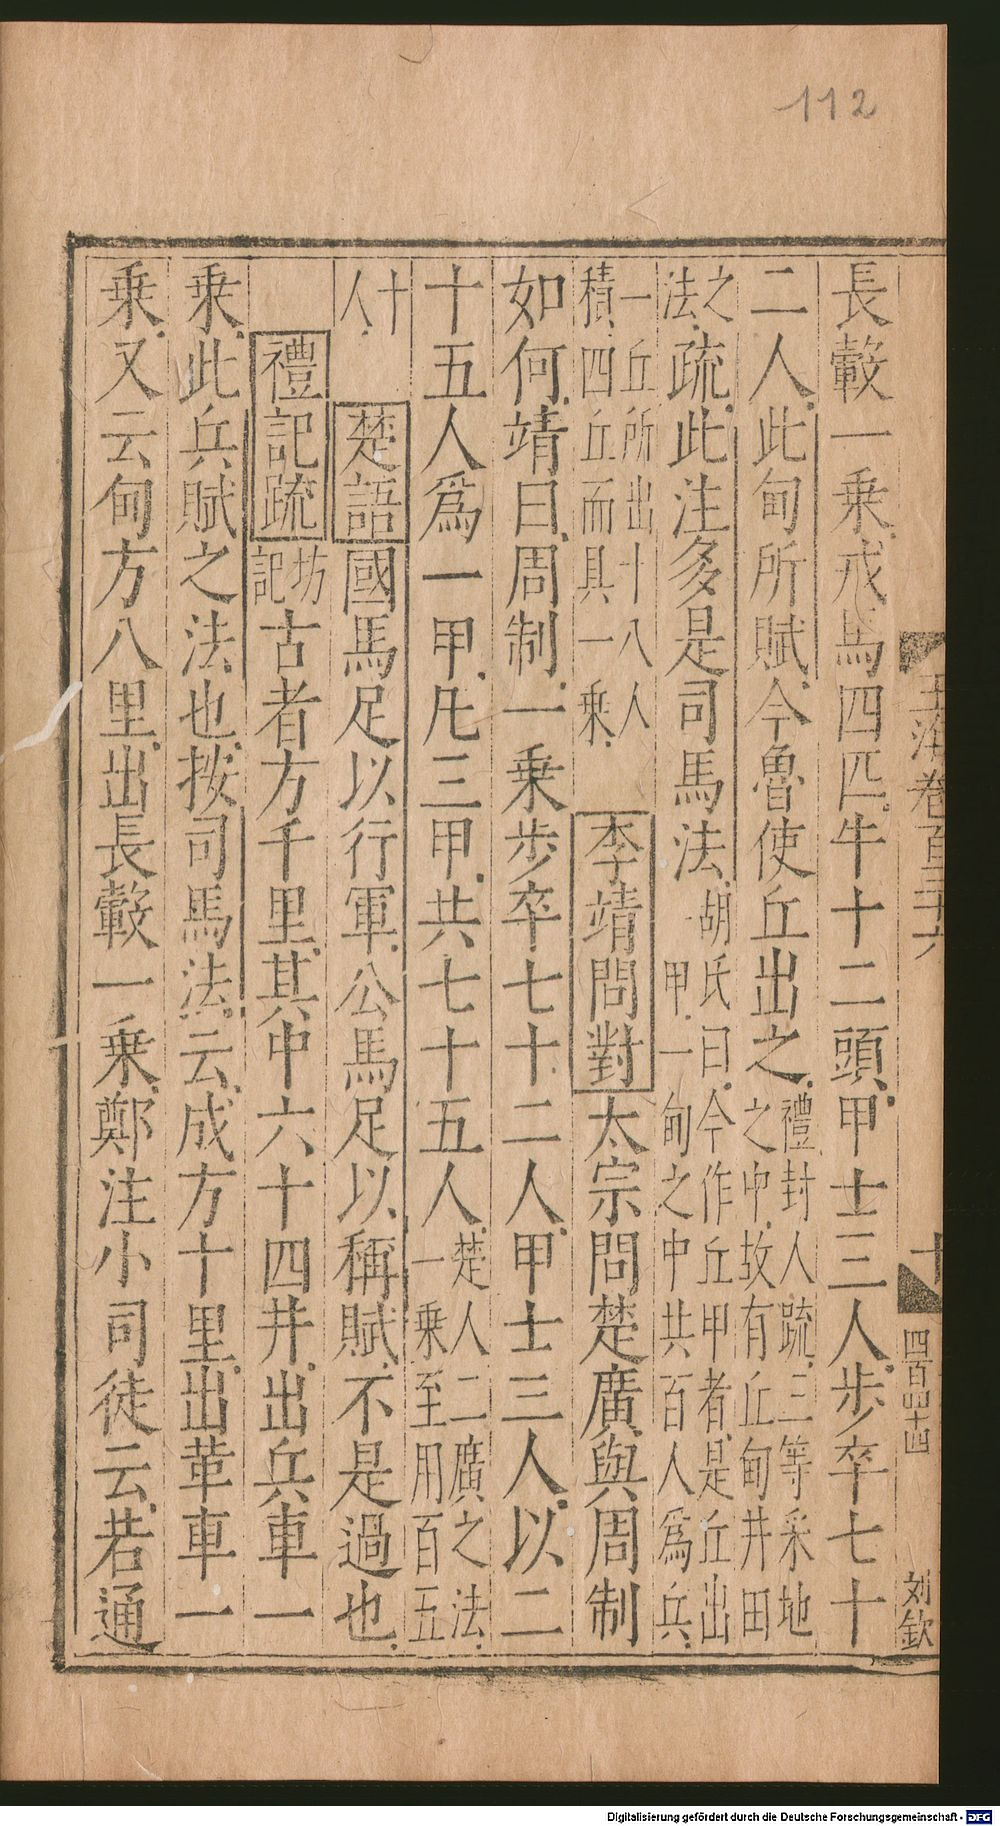 112
長轂一乗戎馬四匹牛十二頭甲士三人歩卒七十
二人此甸所賦今魯使丘出之禮封人疏三等采地之中故有丘甸井田
之法疏此注多是司馬法胡氏曰今作丘甲者是丘出一甲一甸之中共百人爲兵
一丘所出十八人積四丘而具一乗李靖問對太宗問楚廣與周制
如何靖曰周制一乗歩卒七十二人甲士三人以二
十五人爲一甲凡三甲共七十五人楚人二廣之法一乗至用百五
十人楚語國馬足以行軍公馬足以稱賦不是過也
禮記疏坊記古者方千里其中六十四井出兵車一
乗此兵賦之法也按司馬法云成方十里出革車一
乗又云甸方八里出長轂一乗鄭注小司徒云若通
玉海卷百三十六
十
四百四十四
刘欽
Digitalisierung gefördert durch die Deutsche Forschungsgemeinschaft - DFG